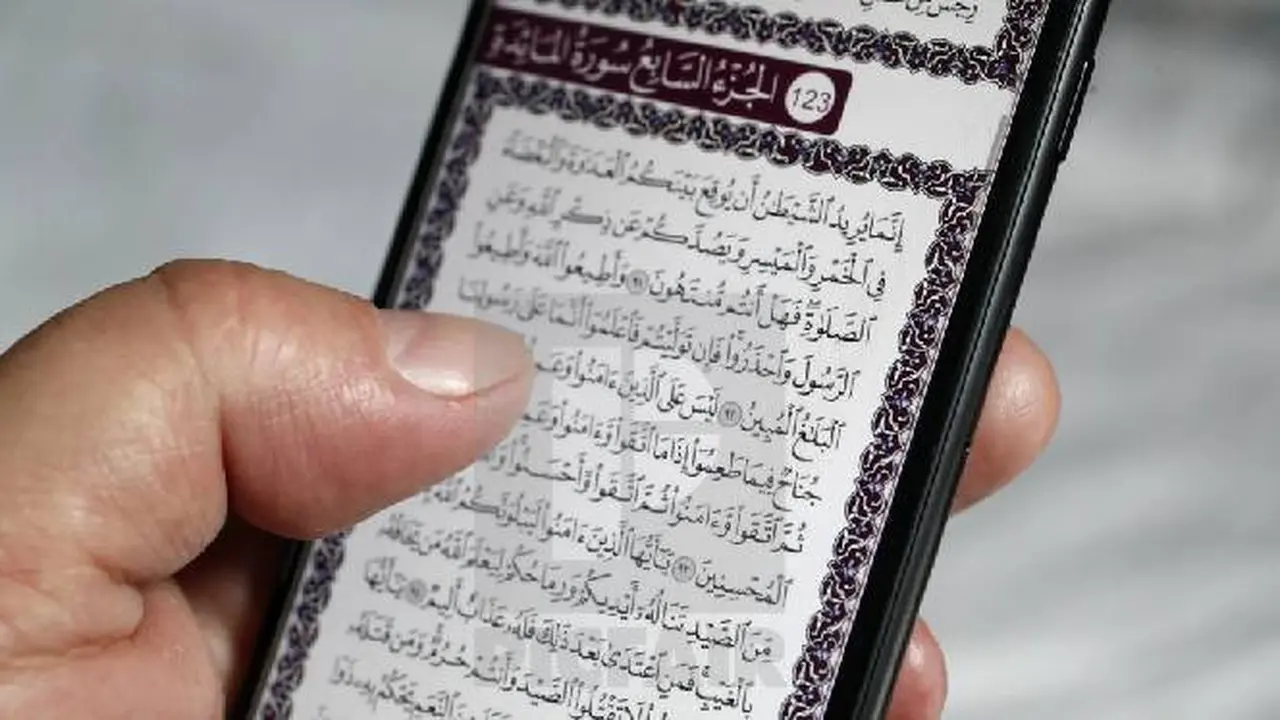 رِجْسٌ مِّنْ
123 الجُزْءُ السَّابِعُ سُورَةُ المَائِدَة
إِنَّمَا يُرِيدُ ٱلشَّيْطَٰنُ أَن يُوقِعَ بَيْنَكُمُ ٱلْعَدَٰوَةَ وَٱلْبَغْضَآءَ
فِي ٱلْخَمْرِ وَٱلْمَيْسِرِ وَيَصُدَّكُمْ عَن ذِكْرِ ٱللَّهِ وَعَنِ
ٱلصَّلَوٰةِ فَهَلْ أَنتُم مُّنتَهُونَ ٩١ وَأَطِيعُوا۟ ٱللَّهَ وَأَطِيعُوا۟
ٱلرَّسُولَ وَٱحْذَرُوا۟ فَإِن تَوَلَّيْتُمْ فَٱعْلَمُوٓا۟ أَنَّمَا عَلَىٰ رَسُولِنَا
ٱلْبَلَٰغُ ٱلْمُبِينُ ٩٢ لَيْسَ عَلَى ٱلَّذِينَ ءَامَنُوا۟
جُنَاحٌ فِيمَا طَعِمُوٓا۟ إِذَا مَا ٱتَّقَوا۟ وَّءَامَنُوا۟
ثُمَّ ٱتَّقَوا۟ وَّءَامَنُوا۟ ثُمَّ ٱتَّقَوا۟ وَّأَحْسَنُوا۟
ٱلْمُحْسِنِينَ ٩٣ يَٰٓأَيُّهَا ٱلَّذِينَ ءَامَنُوا۟ لَيَبْلُوَنَّكُمُ ٱللَّهُ
مِّنَ ٱلصَّيْدِ تَنَالُهُۥٓ أَيْدِيكُمْ وَرِمَاحُكُمْ لِيَعْلَمَ ٱللَّهُ مَن يَخَافُهُۥ
بِٱلْغَيْبِ فَمَنِ ٱعْتَدَىٰ بَعْدَ ذَٰلِكَ فَلَهُۥ عَذَابٌ أَلِيمٌ ٩٤ يَٰٓأَيُّهَا
لَا تَقْتُلُوا۟ ٱلصَّيْدَ وَأَنتُمْ حُرُمٌ وَمَن قَتَلَهُۥ
ٱلنَّعَمِ يَحْكُمُ بِهِۦ ذَوَا
PICFAIR